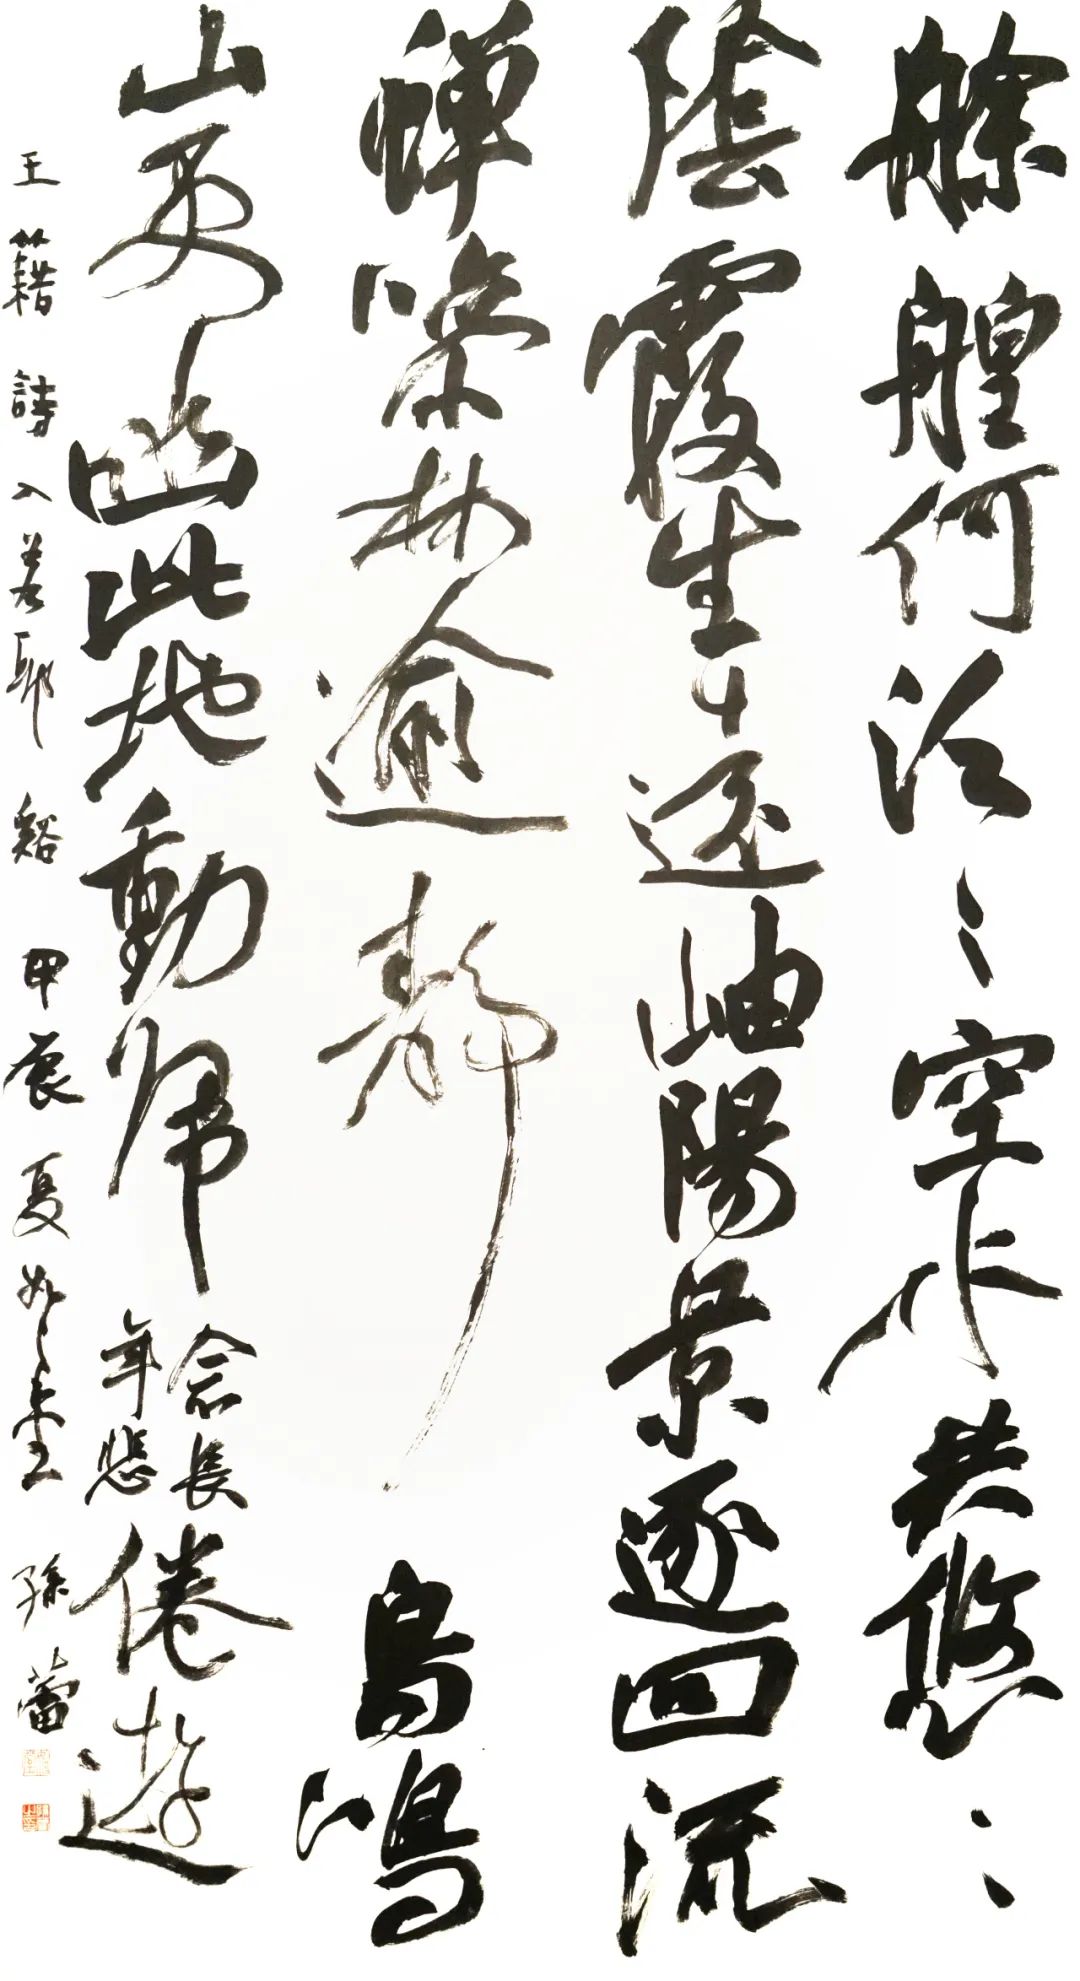 艅艎何泛〻空水共悠〻
陰霞生遠岫陽景逐回流
蝉噪林逾靜鳥鳴
山更幽此地動帰念長年悲倦遊
王籍詩入若耶谿甲辰夏如〻堂孫蕾